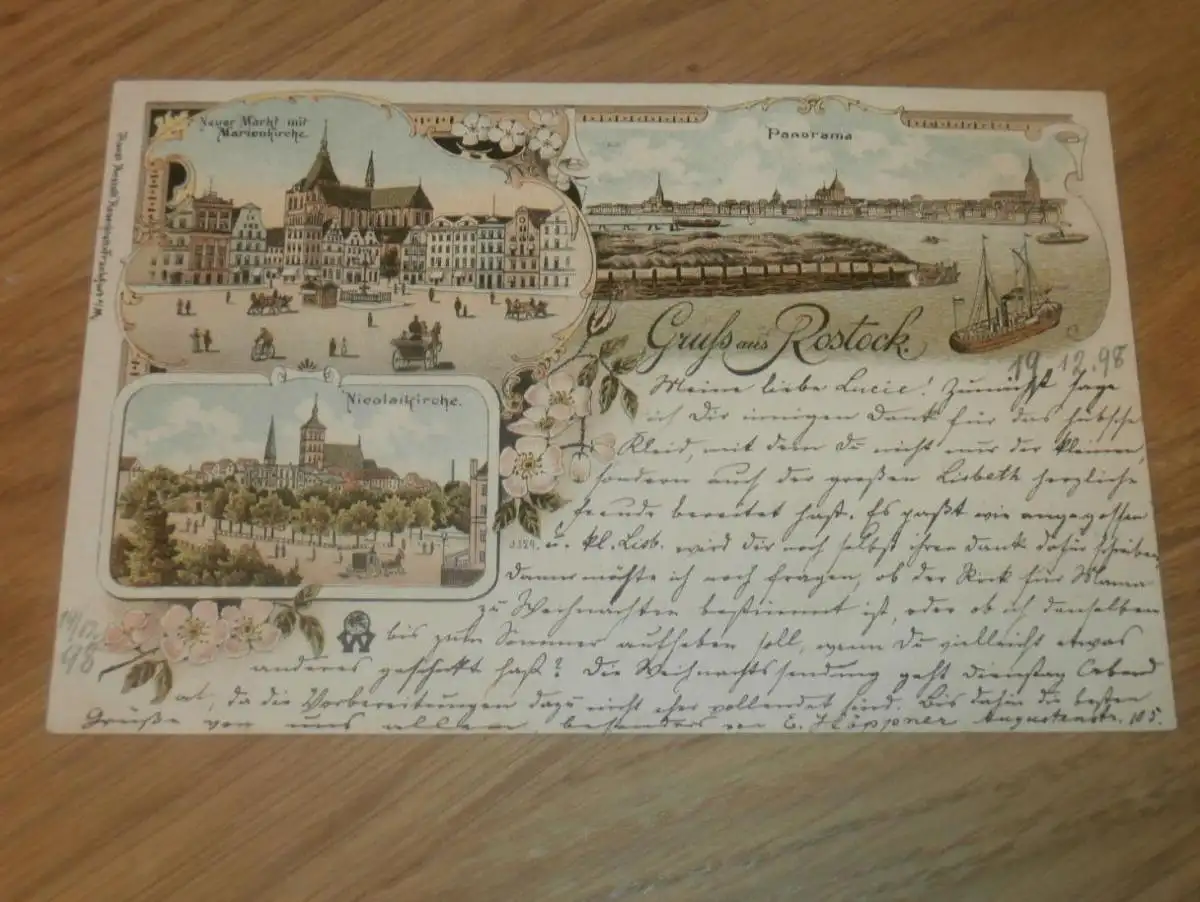 Neuer Markt mit
Marienkirche.
Panorama
Gruss aus Rostock.
Nicolaikirche.
19 12.98
Meine liebe Lucie! Zunächst sage
ich Dir innigen Dank für das hübsche
Kleid, mit dem Du nicht nur der kleinen,
sondern auch der großen Lisbeth herzliche
Freude bereitet hast. Es paßt wie angegossen
J.129. u. kl. Lisb. wird dir noch selbst ihren Dank dafür schreiben
Dann möchte ich noch fragen, ob der Rock für Mama
zu Weihnachten bestimmt ist, oder ob ich denselben
bis zum Sommer aufheben soll, wenn Du vielleicht etwas
anderes geschickt hast? Die Weihnachtssendung geht Dienstag Abend
ab, da die Vorbereitungen dazu nicht eher vollendet sind. Bis dahin die besten
Grüße von uns allen, besonders von E. Höppner Augustenstr. 105.
19/12
98